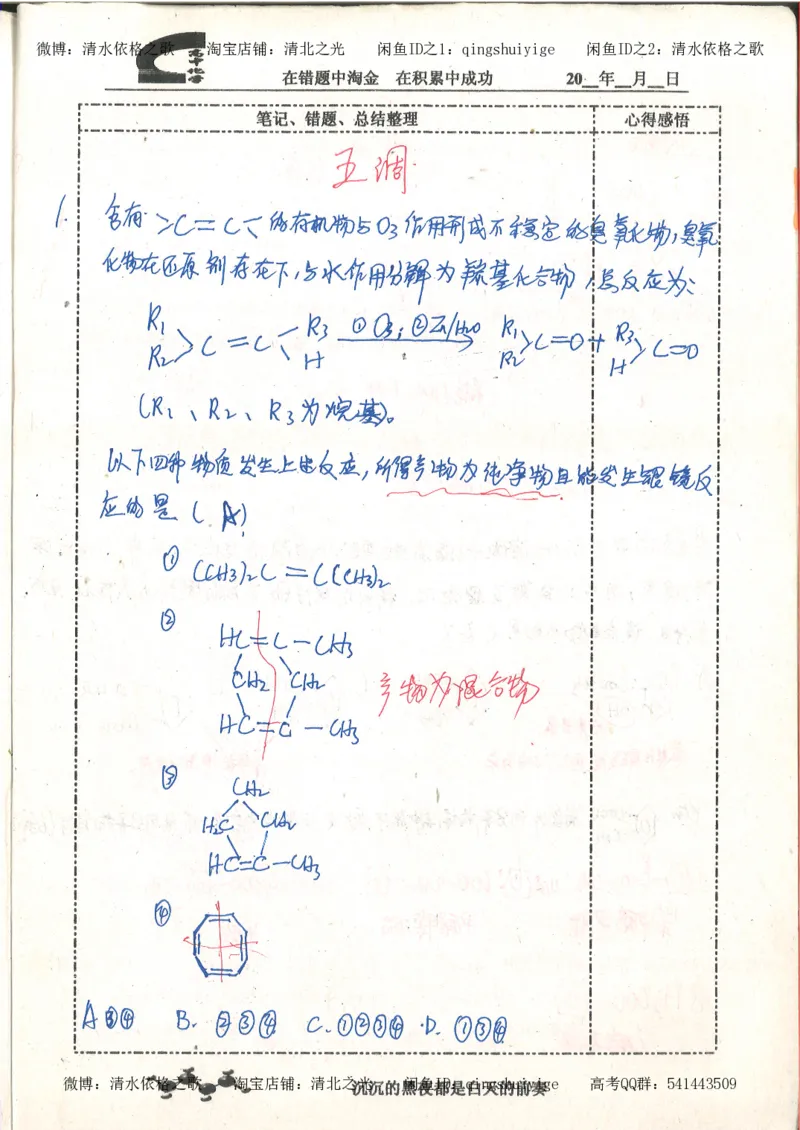 微博：清水依格之歌 淘宝店铺：清北之光 闲鱼ID之1：qingshuiyige 闲鱼ID之2：清水依格之歌
在错题中淘金 在积累中成功 20__年__月__日
笔记、错题、总结整理 心得感悟
五调
1. 含有 >C=C< 的有机物与O3作用形成不稳定的臭氧化物,臭氧
化物在还原剂存在下,与水作用分解为羰基化合物,总反应为:
R1 R3 ①O3;②Zn/H2O R1 R3
>C=C< >C=O + >C=O
R2 H R2 H
(R1、R2、R3为烷基)。
以下四种物质发生上述反应,所得产物为纯净物且能发生银镜反
应的是(A)
① (CH3)2C=C(CH3)2
②
HC=C-CH3
CH2 CH2 产物为混合物
HC=C-CH3
③
CH2
H2C CH2
HC=C-CH3
④
A ③④ B. ②③④ C. ①②③④ D. ①③④
微博：清水依格之歌 淘宝店铺：清北之光 闲鱼ID：qingshuiyige 高考QQ群：541443509
沉沉的黑夜都是白天的前奏